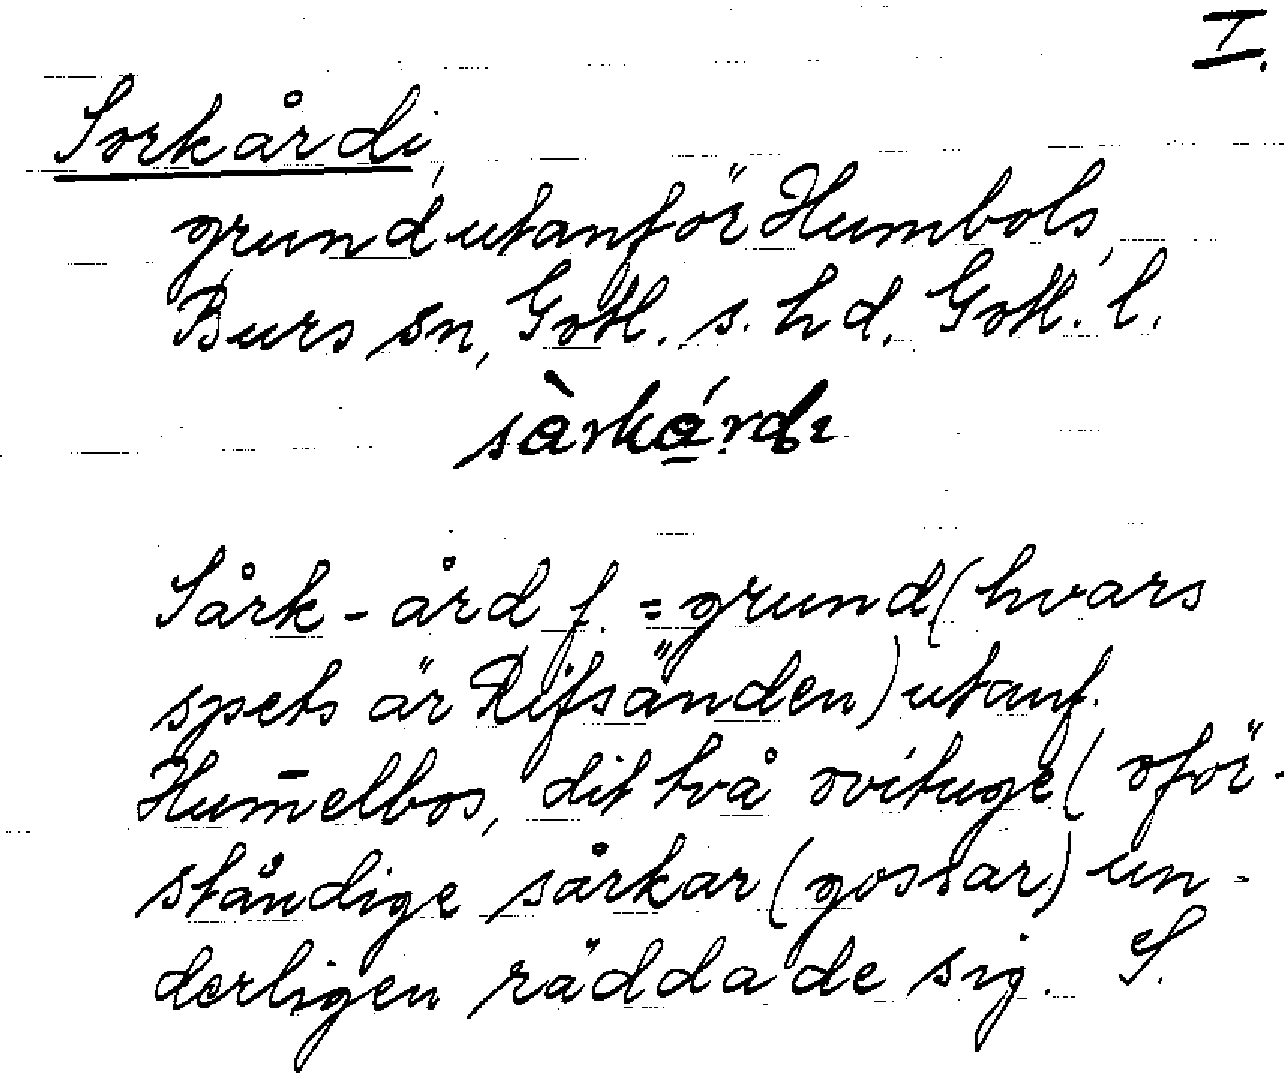 I.
Sorkårdi,
grund utanför Humbols,
Burs sn, Gotl. s. hd. Gotl. l.
Sårk-ård f. = grund (hvars
spets är Rifsänden) utanf.
Hum̄elbos, dit två ovituge (oför-
ståndige sårkar (gossar) un-
derligen räddade sig. S.